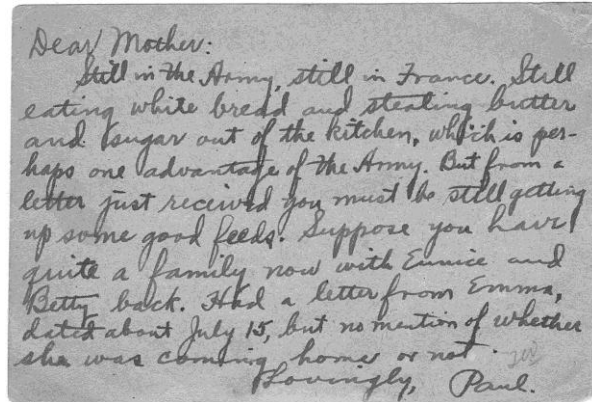 Dear Mother:
Still in the Army, still in France. Still
eating white bread and stealing butter
and sugar out of the kitchen, which is per-
haps one advantage of the Army. But from a
letter just received you must be still getting
up some good feeds. Suppose you have
quite a family now with Eunice and
Betty back. Had a letter from Emma,
dated about July 15, but no mention of whether
she was coming home or not.
Lovingly, Paul.